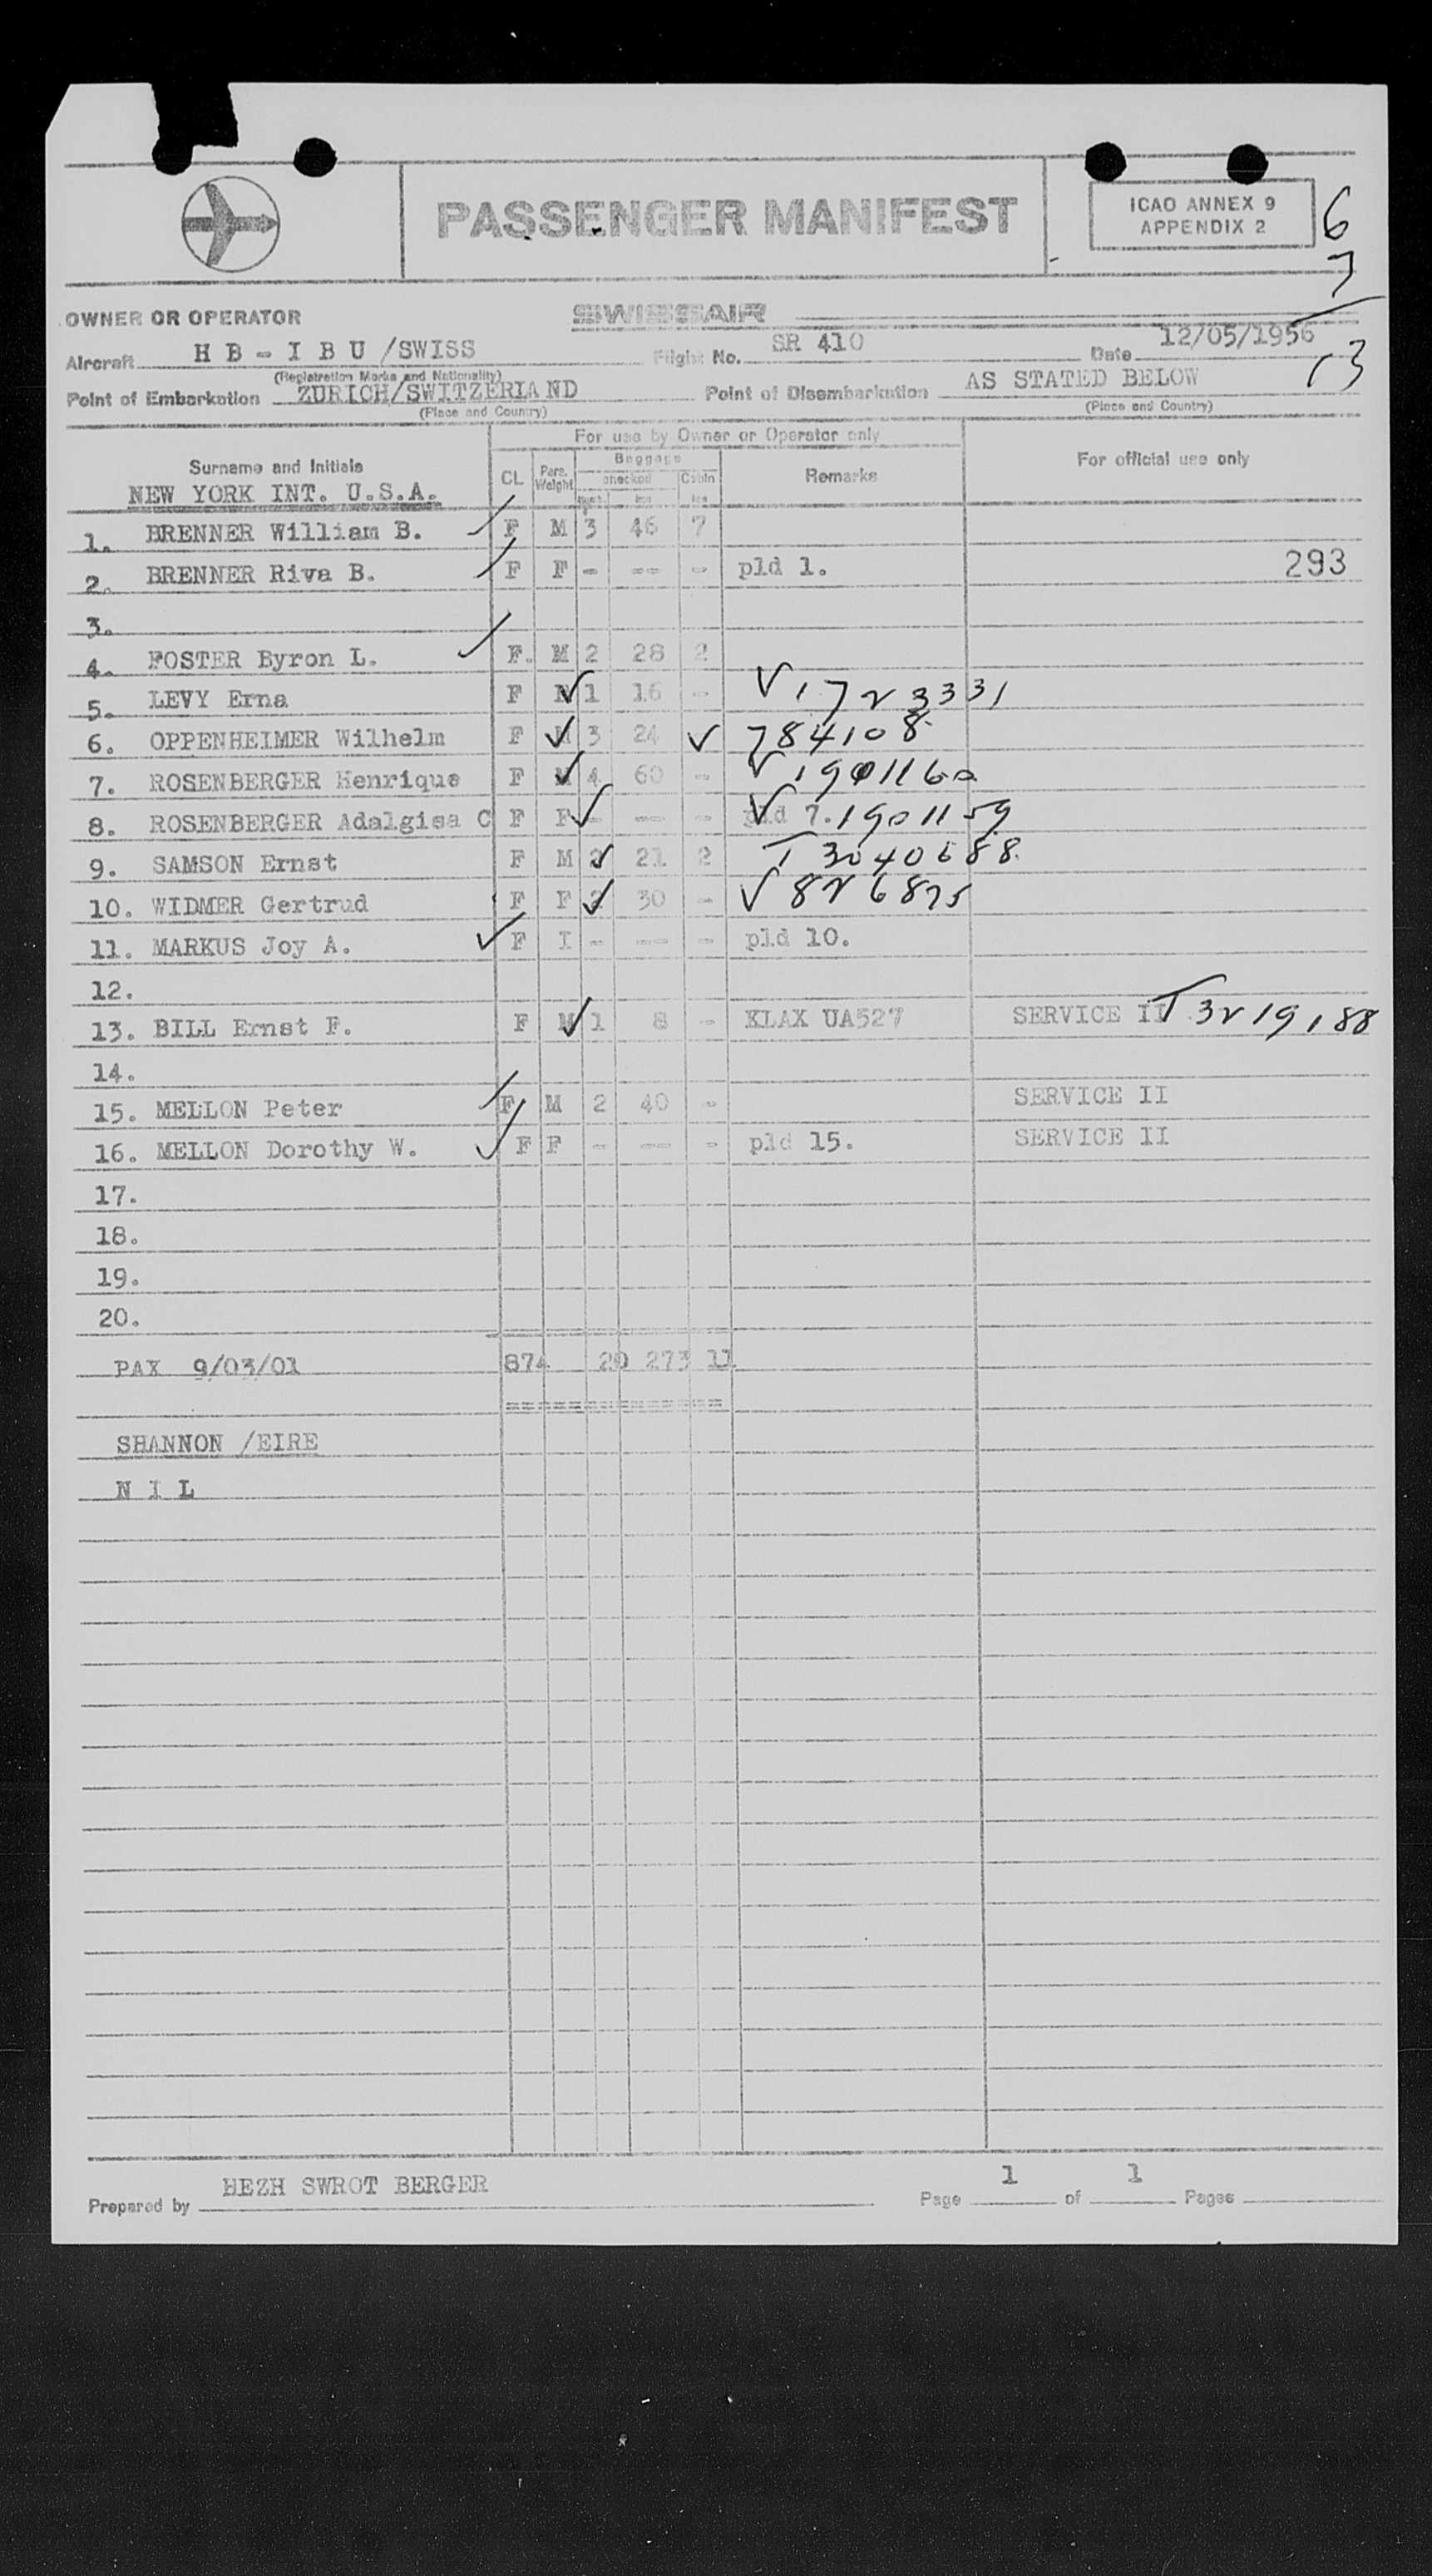 PASSENGER MANIFEST
ICAO ANNEX 9
APPENDIX 2
6
7
13
OWNER OR OPERATOR SWISSAIR
Aircraft H B - I B U /SWISS Flight No. SR 410 Date 12/05/1956
(Registration Marks and Nationality)
Point of Embarkation ZURICH/SWITZERLAND Point of Disembarkation AS STATED BELOW
(Place and Country) (Place and Country)
For use by Owner or Operator only
Surname and Initials CL Pers. Weight Baggage checked Cabin Remarks For official use only
NEW YORK INT. U.S.A.
1. BRENNER William B. F M 3 46 7
2. BRENNER Riva B. F F - -- - pld 1. 293
3.
4. FOSTER Byron L. F. M 2 28 2
5. LEVY Erna F 1 16 - V 1723331
6. OPPENHEIMER Wilhelm F M 3 24 V 784108
7. ROSENBERGER Henrique F M 4 60 - V 1901160
8. ROSENBERGER Adalgisa C F F - -- - V pld 7. 1901159
9. SAMSON Ernst F M 2 21 2 T 3040688
10. WIDMER Gertrud F F 2 30 - V 826875
11. MARKUS Joy A. F I - -- - pld 10.
12.
13. BILL Ernst F. F M 1 8 - KLAX UA527 SERVICE II T 3219188
14.
15. MELLON Peter F M 2 40 - SERVICE II
16. MELLON Dorothy W. F F - -- - pld 15. SERVICE II
17.
18.
19.
20.
PAX 9/03/01 874 20 273 11
==============
SHANNON /EIRE
N I L
Prepared by HEZH SWROT BERGER Page 1 of 1 Pages